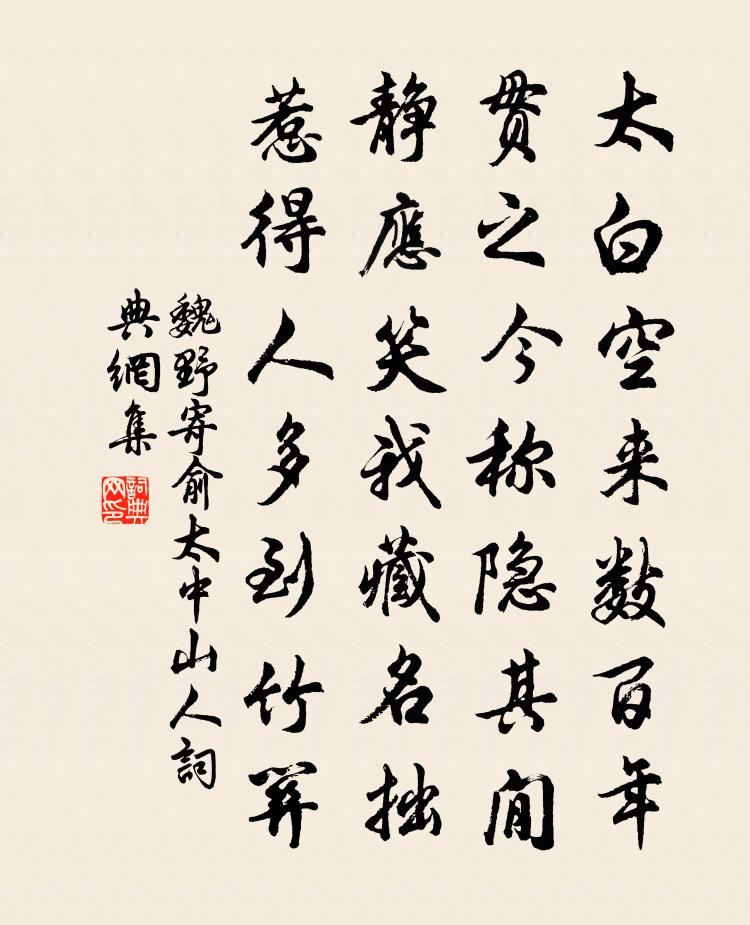 太白空来数百年
贯之今称隐其间
静應笑我藏名拙
惹得人多到竹關
魏野寄俞太中山人詞
典網集
詞典
网印